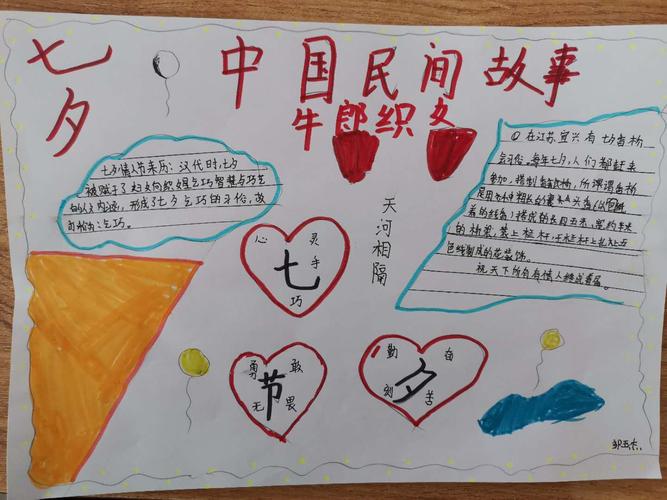 七夕
中国民间故事
牛郎织女
七夕情人节来历：汉代时，七夕
被赋予了妇女向织姐乞巧智慧与巧艺
的人文内涵，形成了七夕乞巧的习俗，故
天河相隔
① 在江苏宜兴有七夕香桥
会习俗。每年七夕，人们都赶来
参加，搭制香桥，所谓香桥
的桥梁，装上栏杆，于栏杆上扎上五
色线制成的花装饰。
祝天下所有有情人终成眷属。
心灵手巧
七
勇敢无畏
节
勤奋刻苦
夕